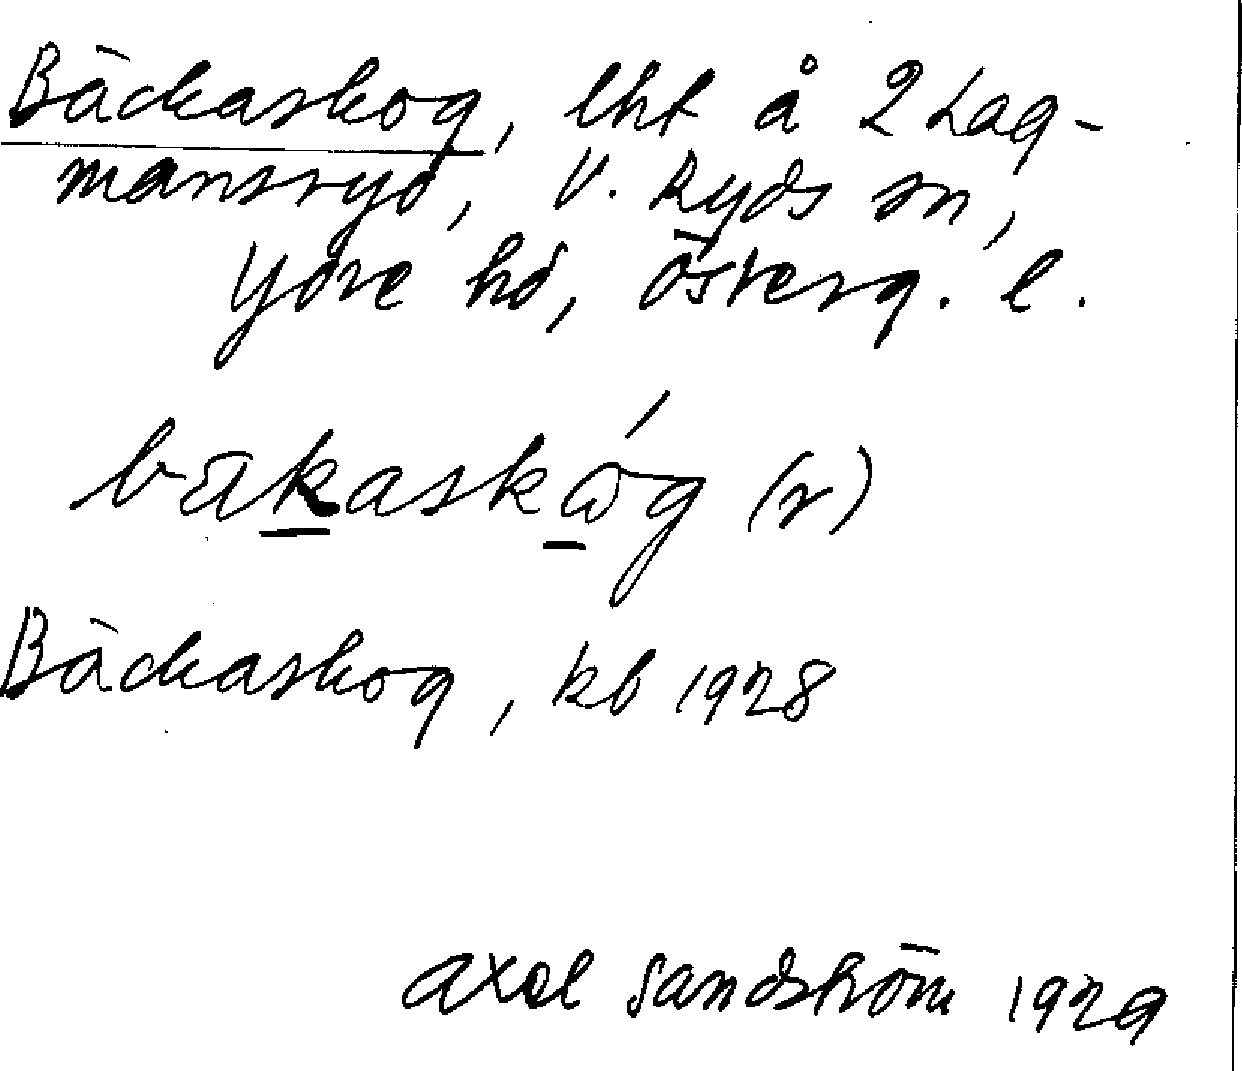 Bäckaskog, lht å 2 Lag-
mansryd, V. Ryds sn,
Ydre hd, Österg. l.
bäkaskóg (r)
Bäckaskog, kb 1928
Axel Sandström 1929